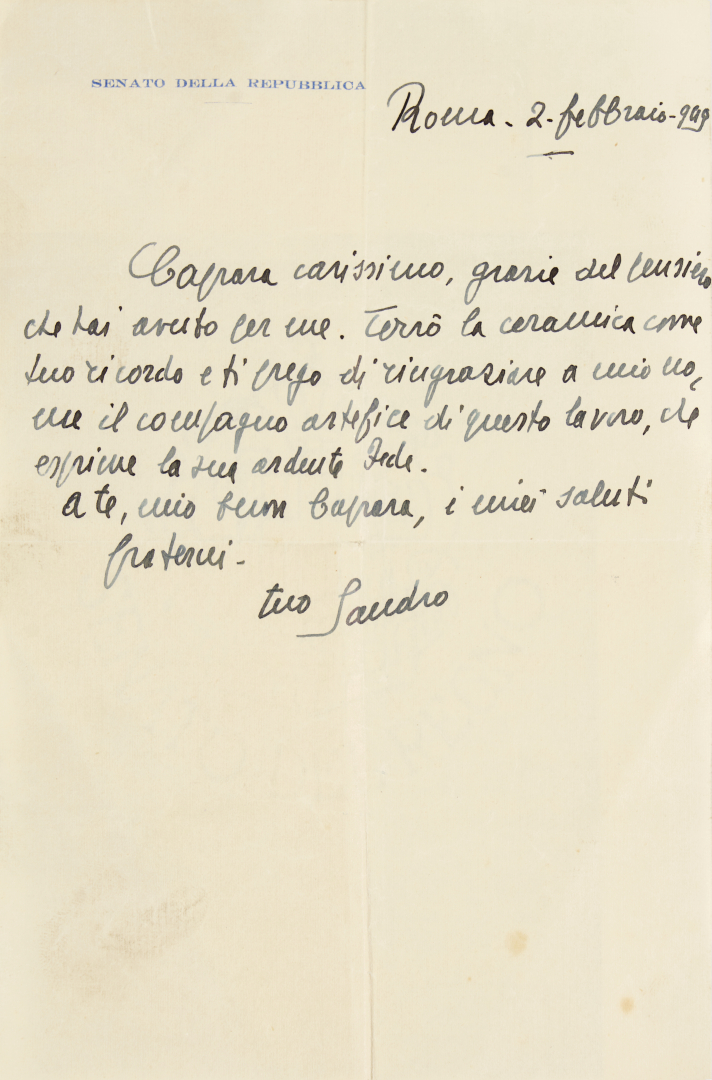 SENATO DELLA REPUBBLICA
Roma - 2 - febbraio - 949
Caprara carissimo, grazie del pensiero
che hai avuto per me. Terrò la ceramica come
tuo ricordo e ti prego di ringraziare a mio no,
me il compagno artefice di questo lavoro, che
esprime la sua ardente Fede.
A te, mio buon Caprara, i miei saluti
fraterni -
tuo Sandro